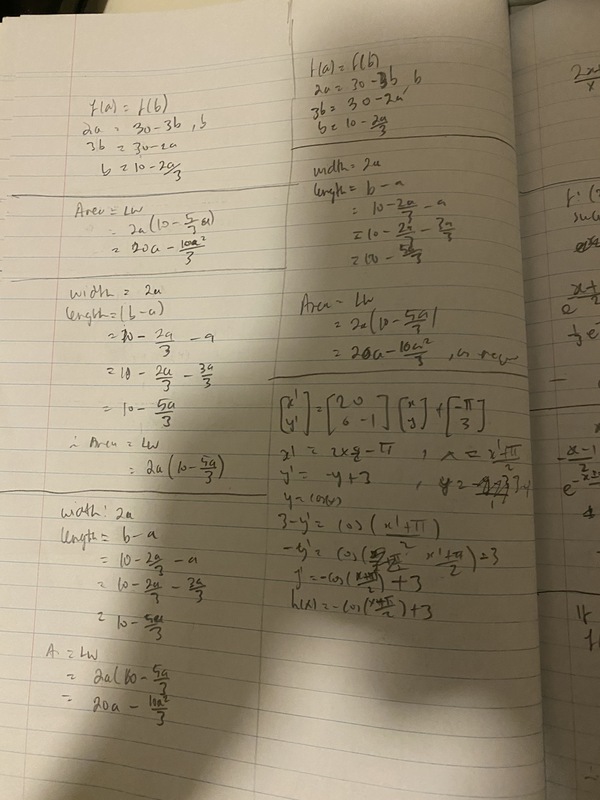 f(a) = f(b)
2a = 30-3b, b
3b = 30-2a
b = 10 - 2a/3
Area = LW
= 2a(10 - 5/3 a)
= 20a - 10a²/3
width = 2a
length = (b-a)
= 10 - 2a/3 - a
= 10 - 2a/3 - 3a/3
= 10 - 5a/3
∴ Area = LW
= 2a(10 - 5a/3)
width: 2a
length = b-a
= 10 - 2a/3 - a
= 10 - 2a/3 - 3a/3
= 10 - 5a/3
A = LW
= 2a(10 - 5a/3
= 20a - 10a²/3
f(a) = f(b)
2a = 30-3b, b
3b = 30-2a
b = 10 - 2a/3
width = 2a
length = b-a
= 10 - 2a/3 - a
= 10 - 2a/3 - 3a/3
= 10 - 5a/3
Area = LW
= 2a(10 - 5a/3)
= 20a - 10a²/3, as req
[x' y'] = [2 0 0 -1] [x y] + [-π 3]
x' = 2x - π, x = x'+π/2
y' = -y+3, y =
y = cos(x)
3-y' = cos(x'+π/2)
-y' = cos(x'+π/2)-3
y' = -cos(x+π/2)+3
h(x) = -cos(x+π/2)+3
f: (
e
1/3 e
-x-1
2
4
If
f(